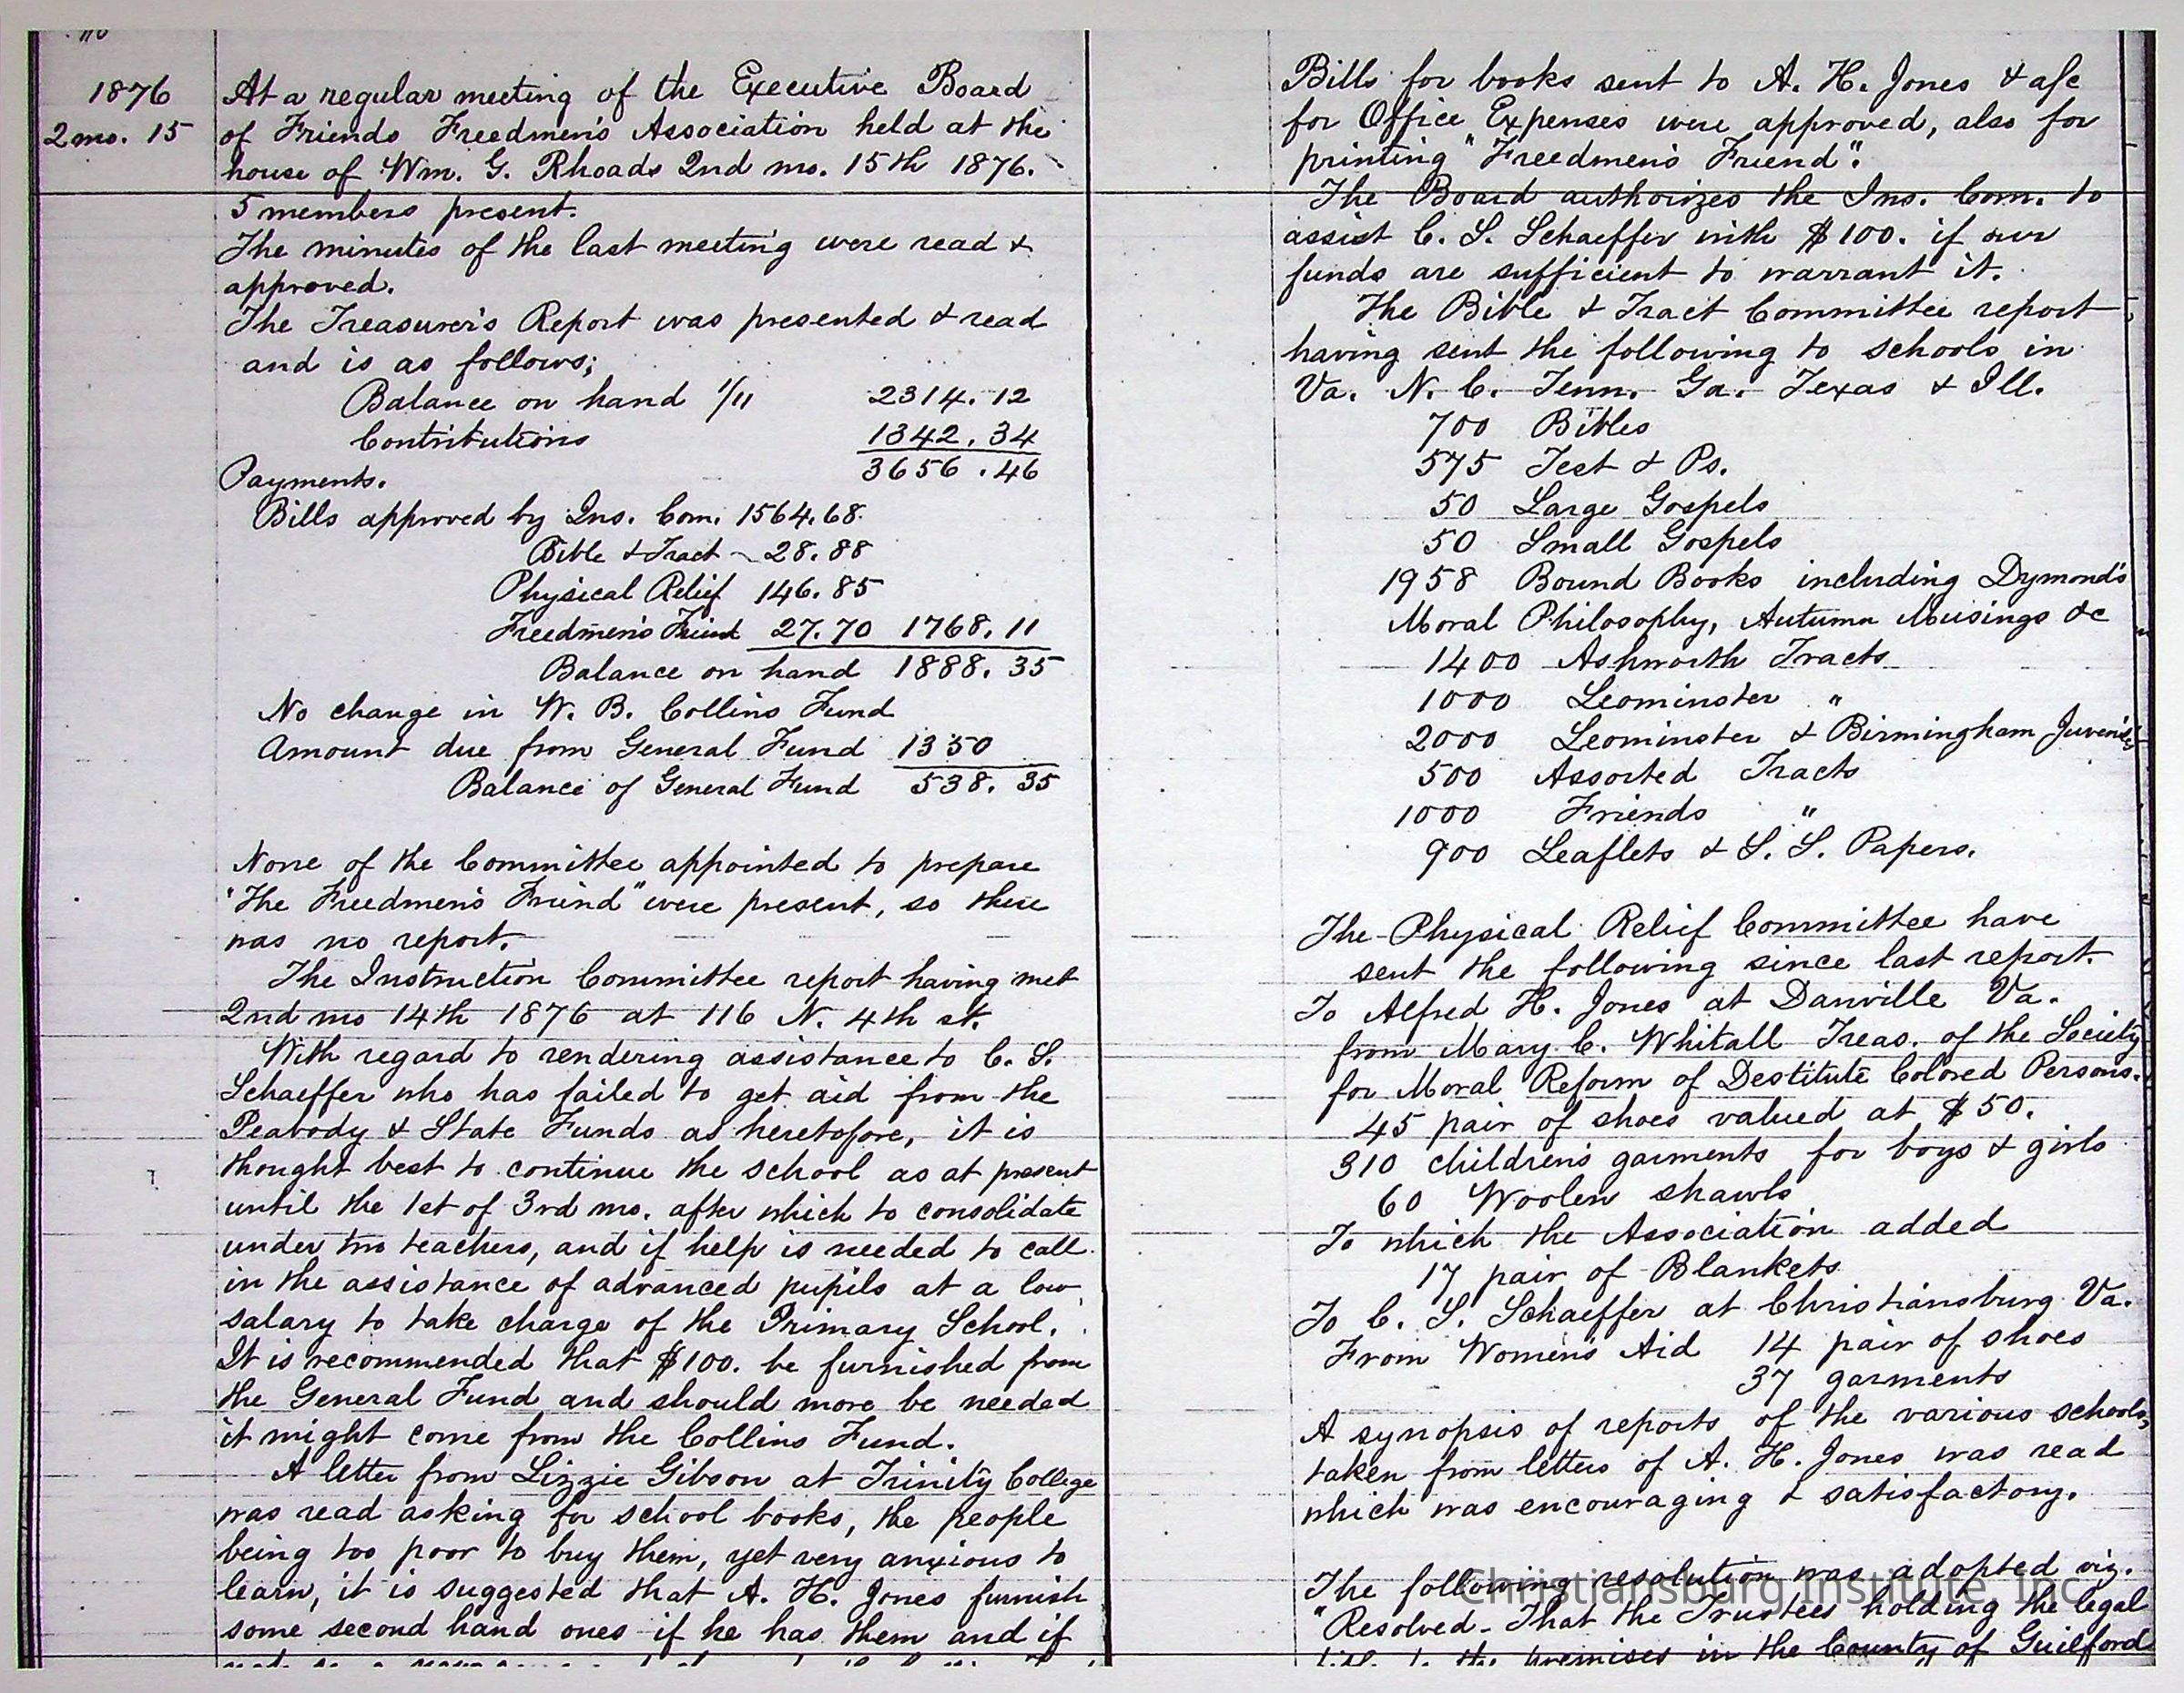 1876
2 mo. 15
At a regular meeting of the Executive Board
of Friends Freedmen's Association held at the
house of Wm. G. Rhoads 2nd mo. 15th 1876.
5 members present.
The minutes of the last meeting were read &
approved.
The Treasurer's Report was presented & read
and is as follows;
Balance on hand 1/11 2314.12
Contributions 1342.34
3656.46
Payments.
Bills approved by Ins. Com. 1564.68
Bible & Tract 28.88
Physical Relief 146.85
Freedmen's Friend 27.70 1768.11
Balance on hand 1888.35
No change in W. B. Collins Fund
Amount due from General Fund 1350
Balance of General Fund 538.35
None of the Committee appointed to prepare
"The Freedmen's Friend" were present, so there
was no report.
The Instruction Committee report having met
2nd mo 14th 1876 at 116 N. 4th st.
With regard to rendering assistance to C. S.
Schaeffer who has failed to get aid from the
Peabody & State Funds as heretofore, it is
thought best to continue the school as at present
until the 1st of 3rd mo. after which to consolidate
under two teachers, and if help is needed to call
in the assistance of advanced pupils at a low
salary to take charge of the Primary School.
It is recommended that $100. be furnished from
the General Fund and should more be needed
it might come from the Collins Fund.
A letter from Lizzie Gibson at Trinity College
was read asking for school books, the people
being too poor to buy them, yet very anxious to
learn, it is suggested that A. H. Jones furnish
some second hand ones if he has them and if
Bills for books sent to A. H. Jones & a/c
for Office Expenses were approved, also for
printing "Freedmen's Friend".
The Board authorizes the Ins. Com. to
assist C. S. Schaeffer with $100. if our
funds are sufficient to warrant it.
The Bible & Tract Committee report
having sent the following to schools in
Va. N. C. Tenn. Ga. Texas & Ill.
700 Bibles
575 Test & Ps.
50 Large Gospels
50 Small Gospels
1958 Bound Books including Dymond's
Moral Philosophy, Autumn Musings &c
1400 Ashworth Tracts
1000 Leominster "
2000 Leominster & Birmingham
500 Assorted Tracts
1000 Friends "
900 Leaflets & S. S. Papers.
The Physical Relief Committee have
sent the following since last report.
To Alfred H. Jones at Danville Va.
from Mary C. Whitall Treas. of the Society
for Moral Reform of Destitute Colored Persons.
45 pair of shoes valued at $50.
310 children's garments for boys & girls
60 Woolen shawls
To which the Association added
17 pair of Blankets
To C. S. Schaeffer at Christiansburg Va.
From Women's Aid 14 pair of shoes
37 garments
A synopsis of reports of the various schools,
taken from letters of A. H. Jones was read
which was encouraging & satisfactory.
The following resolution was adopted viz.
"Resolved - That the Trustees holding the legal
premises in the County of Guilford
Christiansburg Institute, Inc.